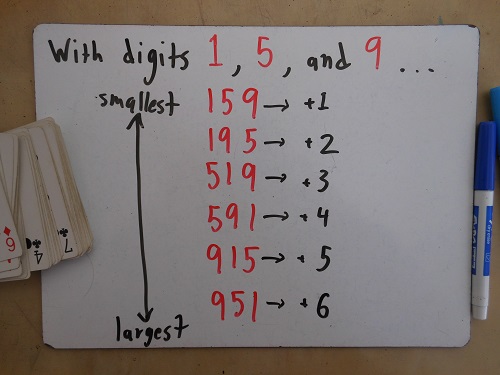 With digits 1, 5, and 9 ...
smallest
159 → +1
195 → +2
519 → +3
591 → +4
915 → +5
951 → +6
largest
6
4
7
EXPO